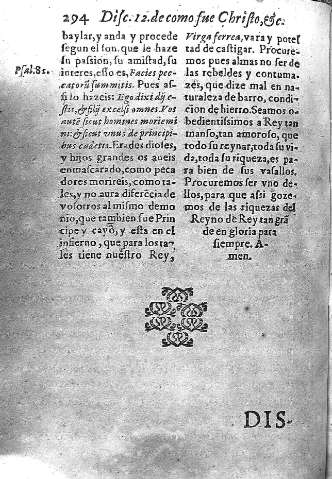 294 Disc. 12. de como fue Christo, &c.
baylar, y anda y procede
segun el son. que le haze
su passion, su amistad, su
interes, esso es, Facies pec-
Psal. 81.
catorũ sumitis. Pues as-
si lo hazeis: Ego dixi dij e-
stis, & filij excelsi omnes. Vos
autẽ sicut homines moriemi
ni: & sicut vnus de principi-
bus cadetis. Erades dioses,
y hijos grandes os aueis
enmascarado, como peca
dores morireis, como ta-
les, y no aura diferẽcia de
vosotros al mismo demo
nio, que tambien fue Prin
cipe y cayò, y esta en el
infierno, que para los ta-
les tiene nuestro Rey,
Virga ferrea, vara y potes
tad de castigar. Procure-
mos pues almas no ser de
las rebeldes y contuma-
zes, que dize mal en na-
turaleza de barro, condi-
cion de hierro. Seamos o-
bedientissimos a Rey tan
manso, tan amoroso, que
todo su reynar, toda su vi
da, toda su riqueza, es pa-
ra bien de sus vasallos.
Procuremos ser vno de-
llos, para que assi goze-
mos de las riquezas del
Reyno de Rey tan grã
de en gloria para
siempre. A-
men.
DIS-